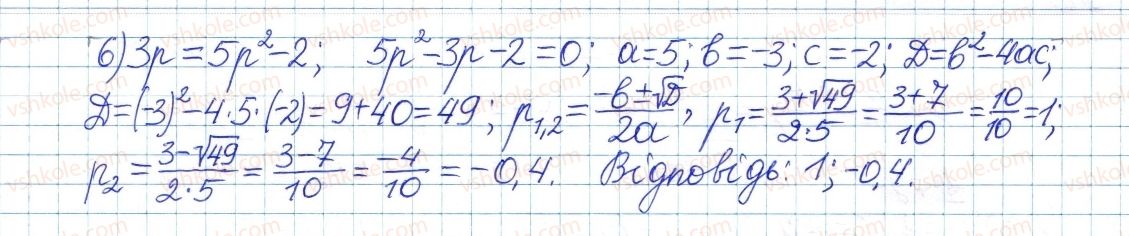 6) 3p = 5p² - 2; 5p² - 3p - 2 = 0; a = 5; b = -3; c = -2; D = b² - 4ac;
D = (-3)² - 4·5·(-2) = 9 + 40 = 49; p₁,₂ = (-b ± √D)/(2a), p₁ = (3 + √49)/(2·5) = (3 + 7)/10 = 10/10 = 1;
p₂ = (3 - √49)/(2·5) = (3 - 7)/10 = -4/10 = -0,4. Відповідь: 1; -0,4.